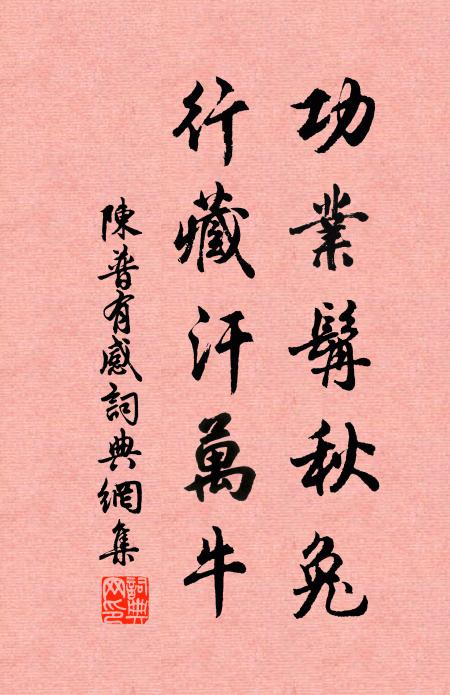 功業髯秋兔
行藏汗萬牛
陳普有感詞典網集
詞典網印